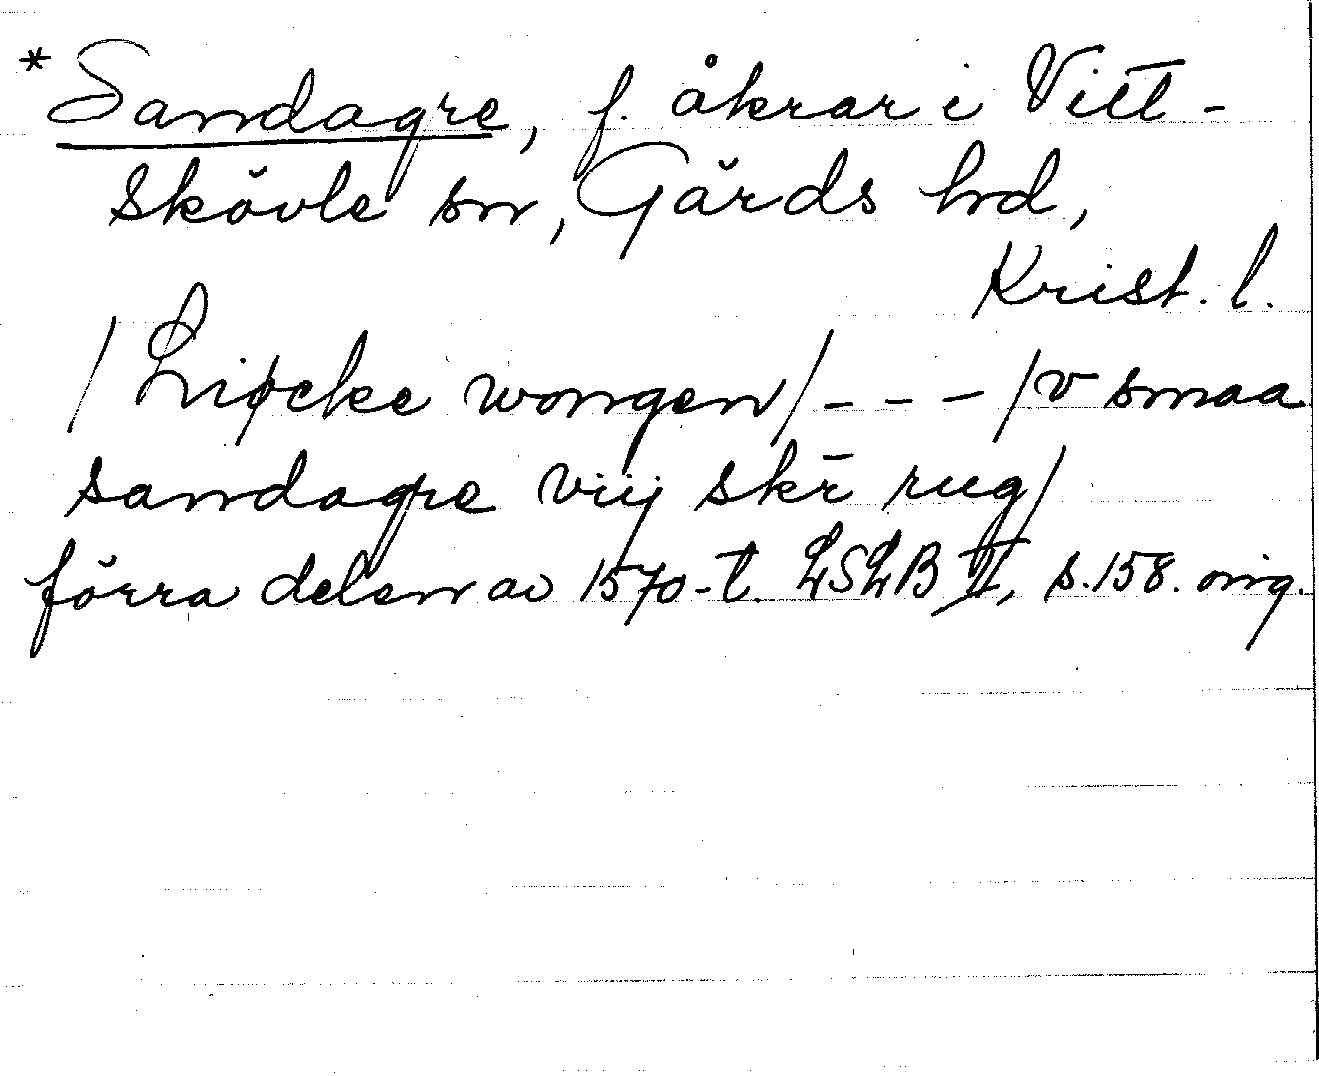 *Sandagre, f. åkrar i Vitt-
skövle sn, Gärds hd,
Krist. l.
/Liøcke wongen/--- /v smaa
sandagre viij skr̄ rug/
förra delen av 1570-t. LSLB II, s.158. orig.